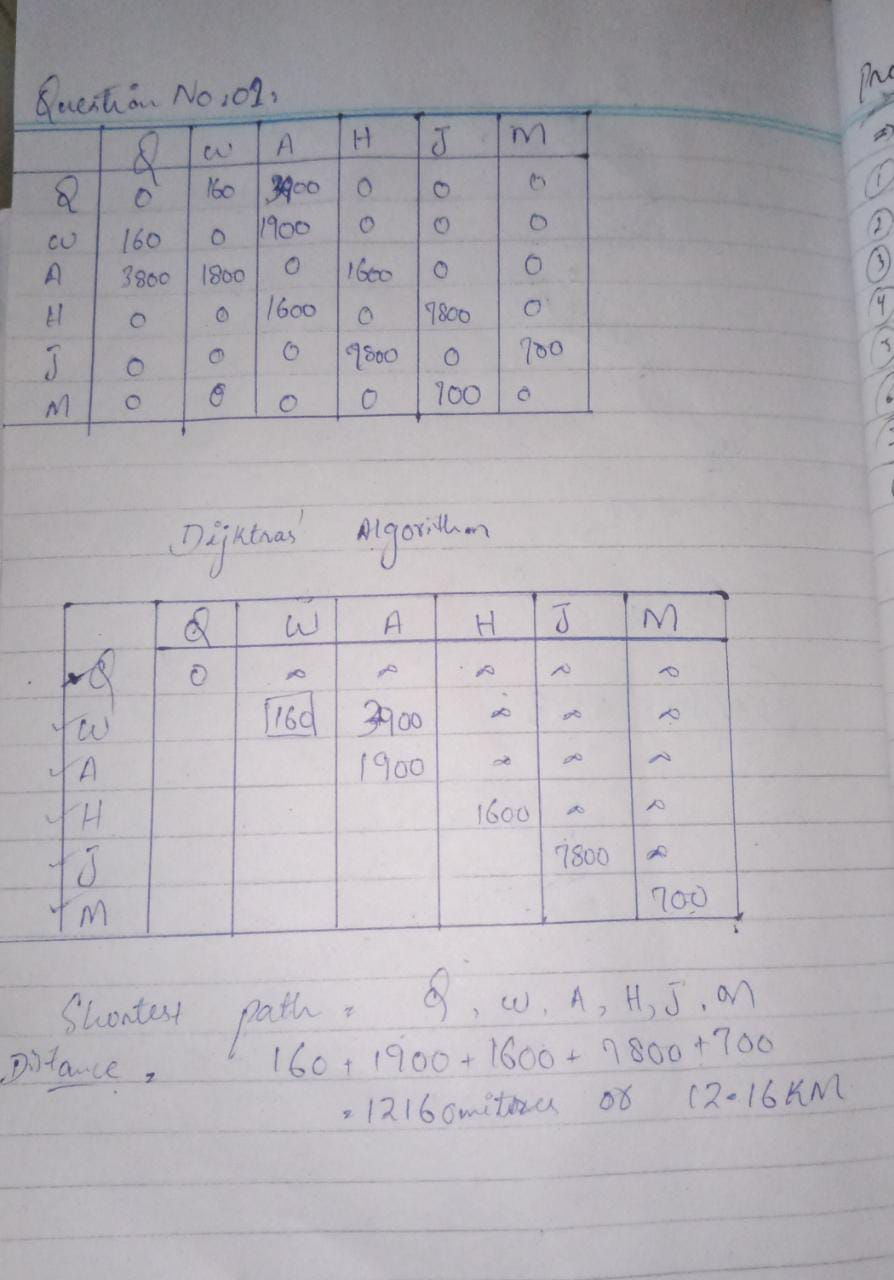 Question No:01:
Q W A H J M
Q 0 160 3900 0 0 0
W 160 0 1900 0 0 0
A 3800 1800 0 1600 0 0
H 0 0 1600 0 7800 0
J 0 0 0 7800 0 700
M 0 0 0 0 700 0
Dijktras' Algorithm
Q W A H J M
Q 0 ∞ ∞ ∞ ∞ ∞
W 160 3900 ∞ ∞ ∞
A 1900 ∞ ∞ ∞
H 1600 ∞ ∞
J 7800 ∞
M 700
Shortest path = Q, W, A, H, J, M
Distance = 160 + 1900 + 1600 + 7800 + 700
= 12160 mitres or 12.16 KM
①
②
③
④